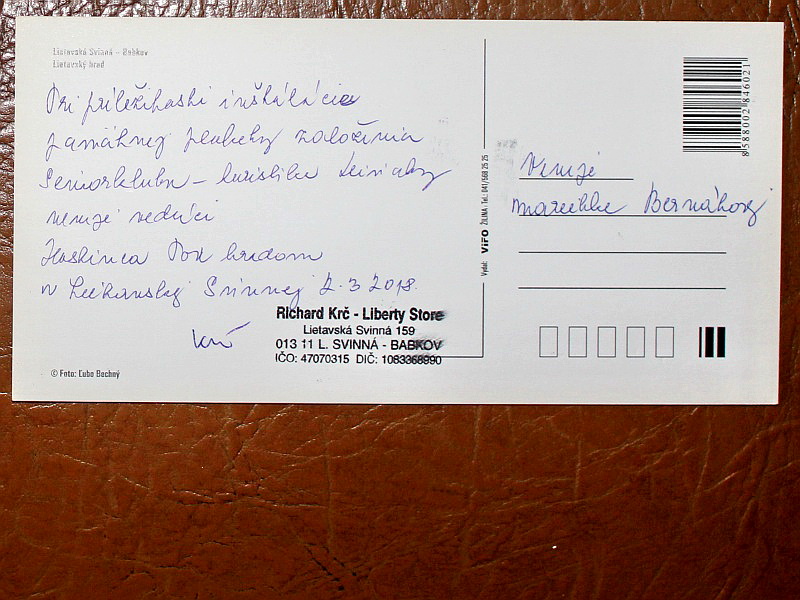 Lietavská Svinná - Babkov
Lietavský hrad
Pri príležitosti inštalácie
pamätnej plakety založenia
Seniorklubu - turistika
venuje vedúci
Hostinca Pod hradom
v Lietavskej Svinnej 2.3 2018.
Krč
Richard Krč - Liberty Store
Lietavská Svinná 159
013 11 L. SVINNÁ - BABKOV
IČO: 47070315 DIČ: 1083368990
© Foto: Ľubo Bechný
Vydal: VIFO ŽILINA, Tel.: 041/568 25 25
8588002846021
Venuje